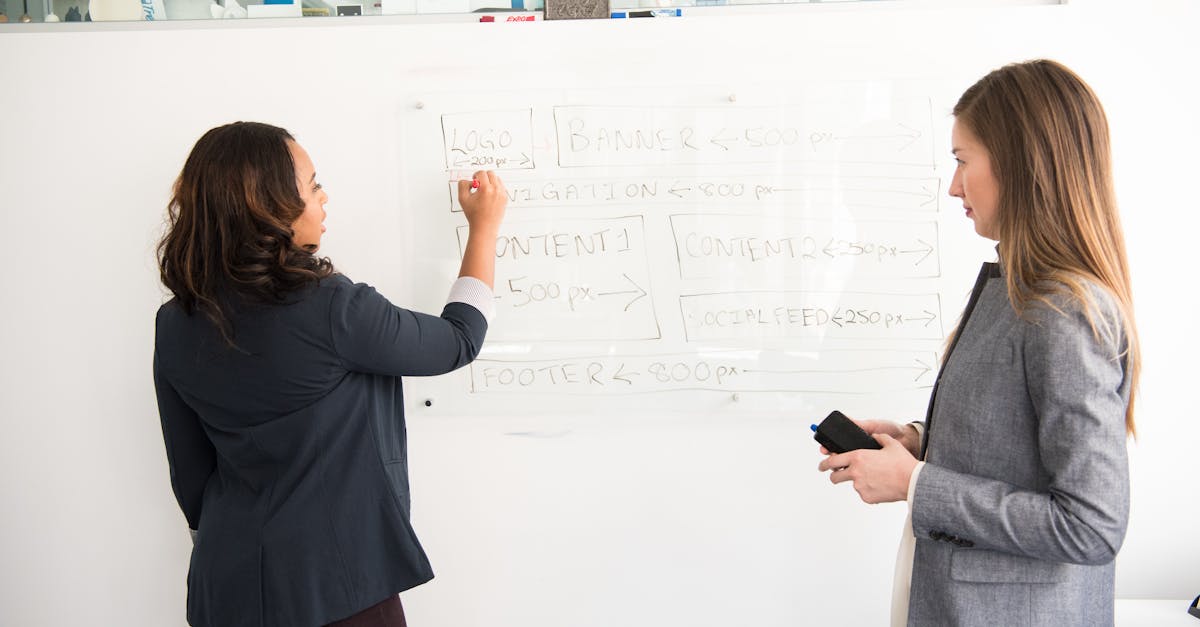 EXPO
LOGO
←200px→
BANNER ←500 px→
NAVIGATION ←800 px→
CONTENT 1
500 px→
CONTENT2←250px→
SOCIAL FEED←250px→
FOOTER ←800px→